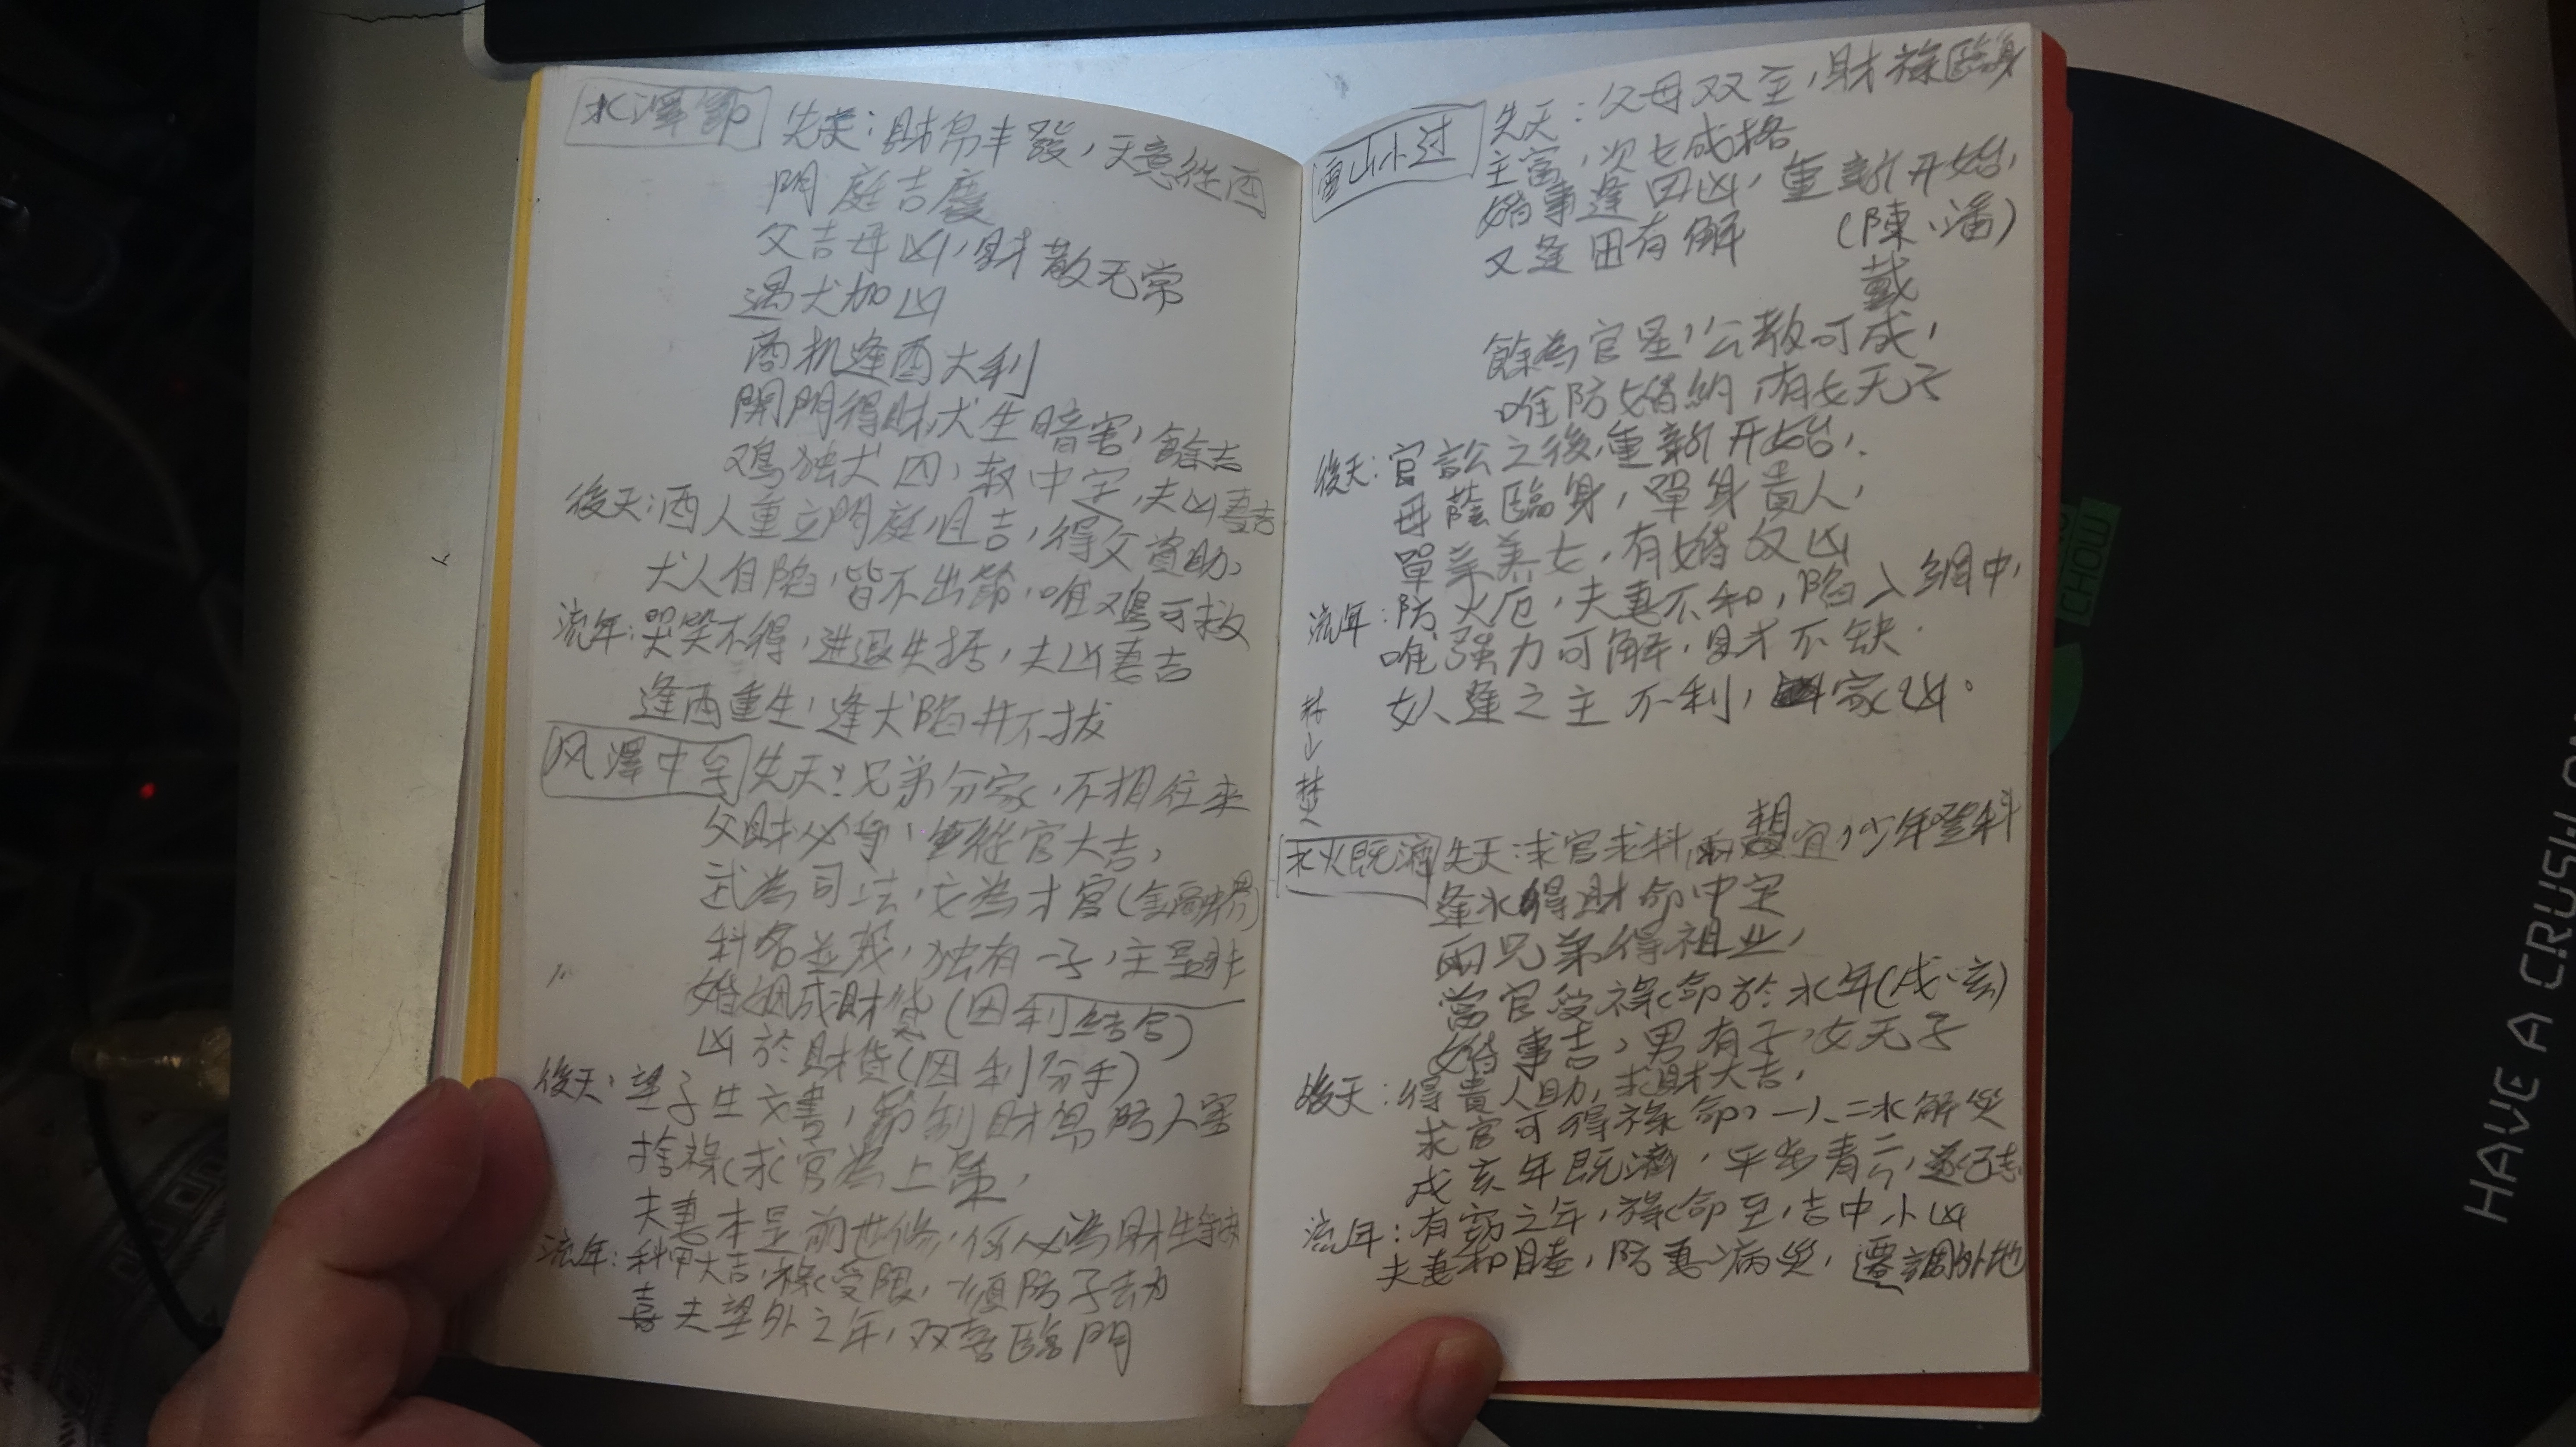 水澤節
先天：財帛丰發，天意從酉
門庭吉慶
父吉母凶，財散无常
遇犬加凶
商机逢酉大利
開門得財，犬生暗害，餘吉
鸡独犬凶，教中定，夫凶妻吉
後天：酉人重立門庭，且吉，得父資助、
犬人自陷，皆不出節，唯鸡可救
流年：哭笑不得，進退失据，夫凶妻吉
逢酉重生，逢犬陷井不拔
风澤中孚
先天：兄弟分家，不相往来
父財必爭，從官大吉，
武為司法，文為才官（金融界）
科名並茂，独有一子，主是非
婚姻成財貨（因利結合）
凶於財貨（因利分手）
後天：望子生文書，節制財帛防人害
捨祿求官為上策，
夫妻本是前世修，何必為財生
流年：科甲大吉，祿受限，須防子劫
喜夫望外之年，双喜臨門
雷山小过
先天：父母双全，財祿臨身
主富，次女成格
婚事逢田凶，重新开始，
又逢田有解 （陳、潘）
戴
餘為官星，公教可成，
唯防婚約，有女无子
後天：官訟之後，重新开始，
母蔭臨身，單身貴人，
單亲美女，有婚反凶
流年：防火厄，夫妻不和，陷入網中，
唯強力可解，財不缺．
女人逢之主不利，家凶。
林
山
楚
水火既濟
先天：求官求科兩相宜，少年登科
逢水得財命中定
兩兄弟得祖业，
當官受祿命於水年（戌、亥）
婚事吉，男有子，女无子
後天：得貴人助，求財大吉，
求官可得祿命，一人二水解災
戌亥年既濟，平步青云，遂己志
流年：有窮之年，祿命至，吉中小凶
夫妻和睦，防妻病災，遷調外地
CHOW
HAVE A CRUSH ON